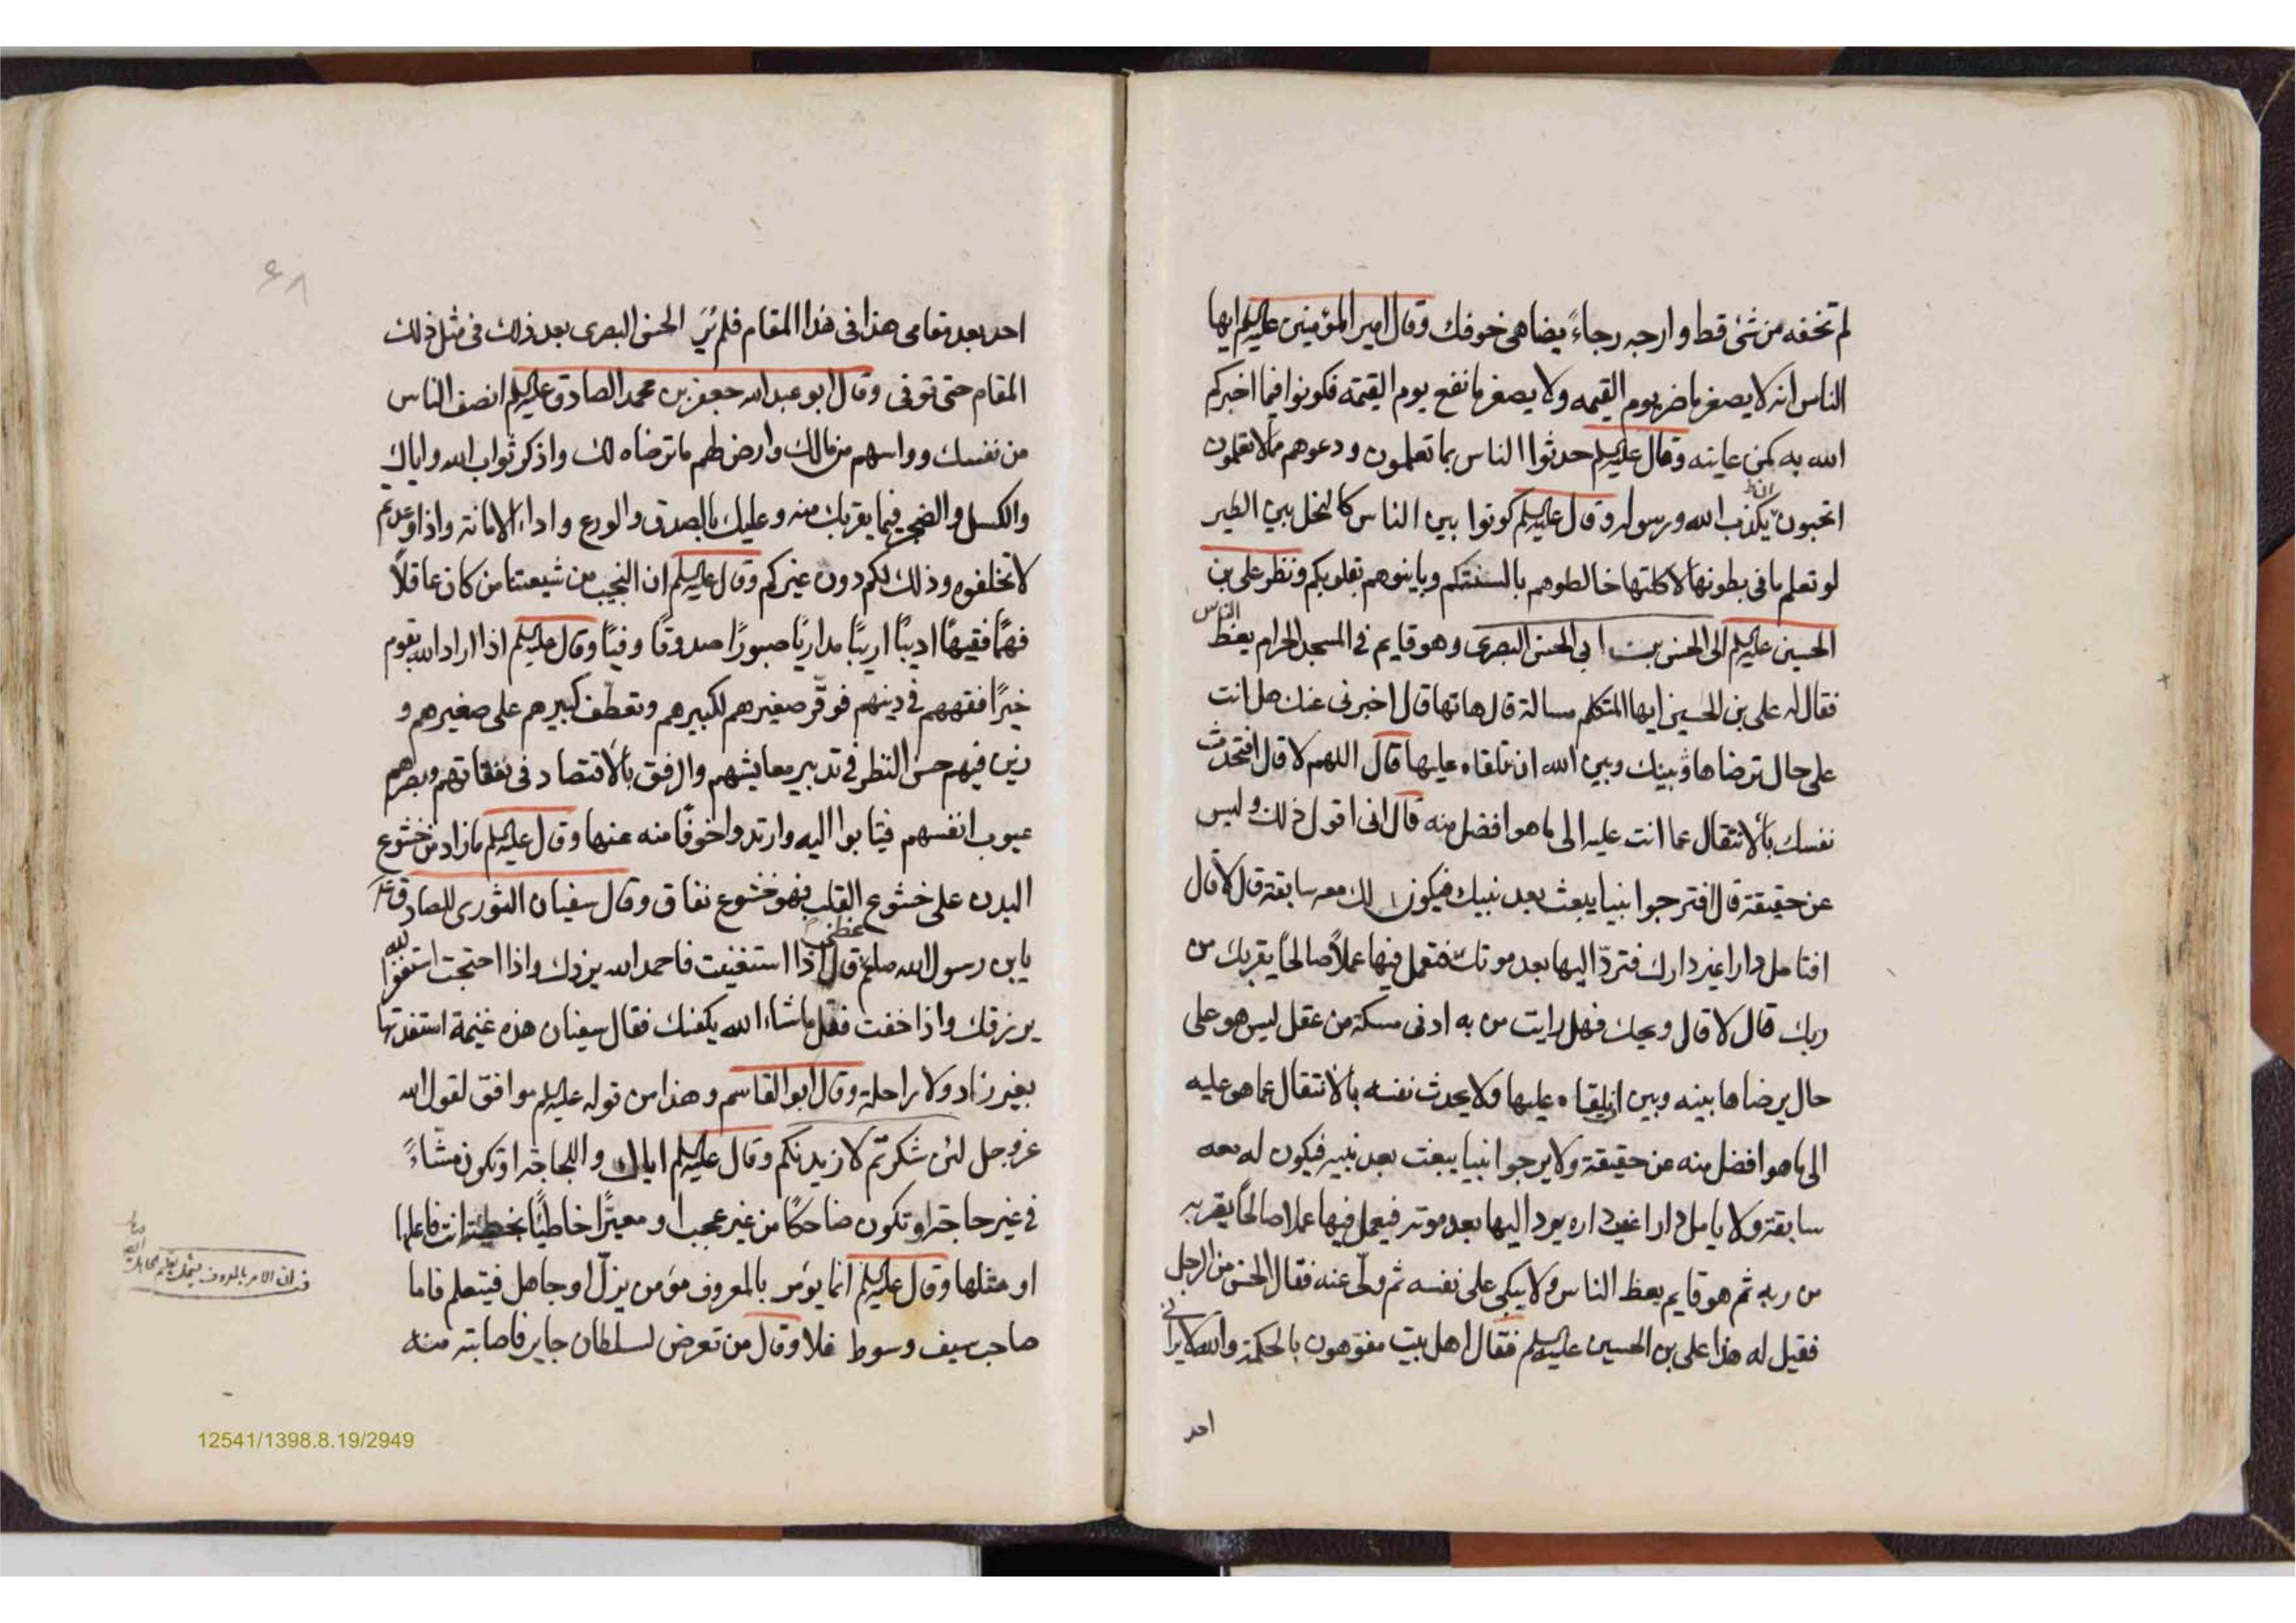 لم تخفه من شئ قط وارجه رجاءً يضاهى خوفك وقال امير المؤمنين عليه السلم ايها
الناس انه لا يصغر ما ضر يوم القيمه ولا يصغر ما نفع يوم القيمة فكونوا فيما اخبركم
الله به كمن عاينه وقال عليه السلم حدثوا الناس بما تعلمون ودعوهم مما لا تعلمون
اتحبون ان يكذب الله ورسوله وقال عليه السلم كونوا بين الناس كالنحل بين الطير
لو تعلم ما فى بطونها لاكلتها خالطوهم بالسنتكم وباينوهم بقلوبكم ونظر على بن
الحسين عليه السلم الى الحسن بن ابى الحسن البصرى وهو قايم فى المسجد الحرام يعظ الناس
فقال له على بن الحسين ايها المتكلم مسالة قال هاتها قال اخبرنى عنك هل انت
على حال ترضاها فيما بينك وبين الله ان تلقاه عليها قال اللهم لا قال افتحدث
نفسك بالانتقال عما انت عليه الى ما هو افضل منه قال انى اقول ذلك وليس
عن حقيقة قال افترجوا نبيا يبعث بعد نبيك فيكون لك معه سابقة قال لا قال
افتامل دارا غير دارك فتردّ اليها بعد موتك فتعمل فيها عملاً صالحاً يقربك من
ربك قال لا قال ويحك فهل رايت من به ادنى مسكة من عقل ليس هو على
حال يرضاها بينه وبين ان يلقاه عليها ولا يحدث نفسه بالانتقال عما هو عليه
الى ما هو افضل منه عن حقيقة ولا يرجوا نبيا يبعث بعد نبيه فيكون له معه
سابقة ولا يامل دارا غير داره يرد اليها بعد موته فيعمل فيها عملا صالحاً يقربه
من ربه ثم هو قايم يعظ الناس ولا يبكى على نفسه ثم ولّى عنه فقال الحسن من الرجل
فقيل له هذا على بن الحسين عليه السلم فقال اهل بيت مفوّهون بالحكمة والله لا يرانى
احد
احد بعد مقامى هذا فى هذا المقام فلم يُرَ الحسن البصرى بعد ذلك فى مثل ذلك
المقام حتى توفى وقال ابو عبد الله جعفر بن محمد الصادق عليه السلم انصف الناس
من نفسك وواسهم من مالك وارض لهم ما ترضاه لك واذكر ثواب الله واياك
والكسل والضجر فيما يقربك منه وعليك بالصدق والورع واداء الامانة واذا وعدتم
لا تخلفوه وذلك لكم دون غيركم وقال عليه السلم ان النجيب من شيعتنا من كان عاقلاً
فهمًا فقيهًا اديبًا اريبًا مداريًا صبورًا صدوقًا وفيًا وقال عليه السلم اذا اراد الله بقوم
خيرًا فقههم فى دينهم فوقّر صغيرهم لكبيرهم وتعطّف كبيرهم على صغيرهم و
زين فيهم حسن النظر فى تدبير معايشهم والرفق بالاقتصاد فى نفقاتهم وبصرهم
عيوب انفسهم فيتابوا اليه وارتدوا خوفًا منه عنها وقال عليه السلم ما زاد من خشوع
البدن على خشوع القلب فهو خشوع نفاق وقال سفيان الثورى للصادق
يابن رسول الله صلعم عظنى قال اذا استغنيت فاحمد الله يزدك واذا احتجت استغفر الله
يرزقك واذا خفت فقل ما شاء الله يكفك فقال سفيان هذه غنيمة استفدتها
بغير زاد ولا راحلة وقال ابو القاسم وهذا من قوله عليه السلم موافق لقول الله
عز وجل لئن شكرتم لازيدنكم وقال عليه السلم اياك واللجاجة او تكون مشاءً
فى غير حاجة او تكون ضاحكًا من غير عجب او معيّرًا خاطئًا بخطيئة انت فاعلها
او مثلها وقال عليه السلم انما يؤمر بالمعروف مؤمن يزلّ او جاهل فيتعلم فاما
صاحب سيف وسوط فلا وقال من تعرض لسلطان جاير فاصابته منه
٦٨
12541/1398.8.19/2949